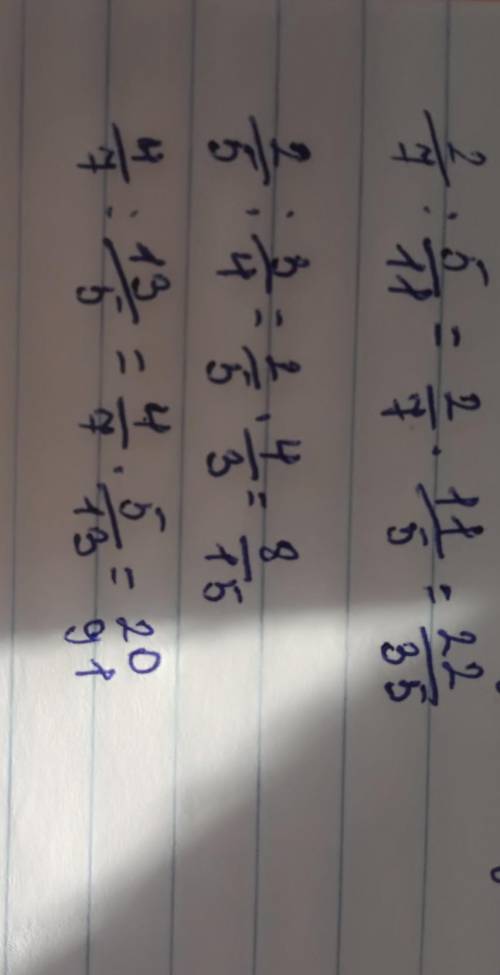 2/7 : 5/11 = 2/7 · 11/5 = 22/35
2/5 : 3/4 = 2/5 · 4/3 = 8/15
4/7 : 13/5 = 4/7 · 5/13 = 20 91